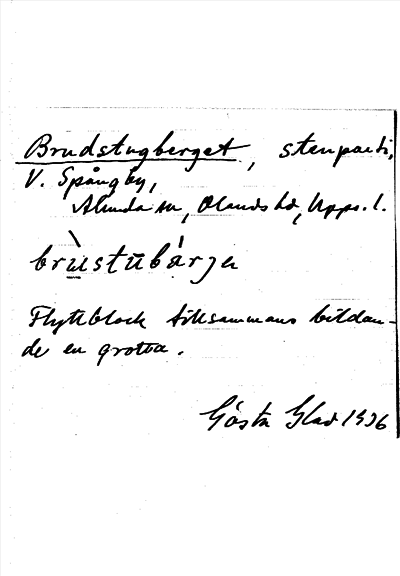 Brudstugberget, stenparti,
V. Spångby,
Alunda sn, Olands hd, Upps. l.
brùstubárjer
Flyttblock tillsammans bildan-
de en grotta.
Gösta Glad 1936